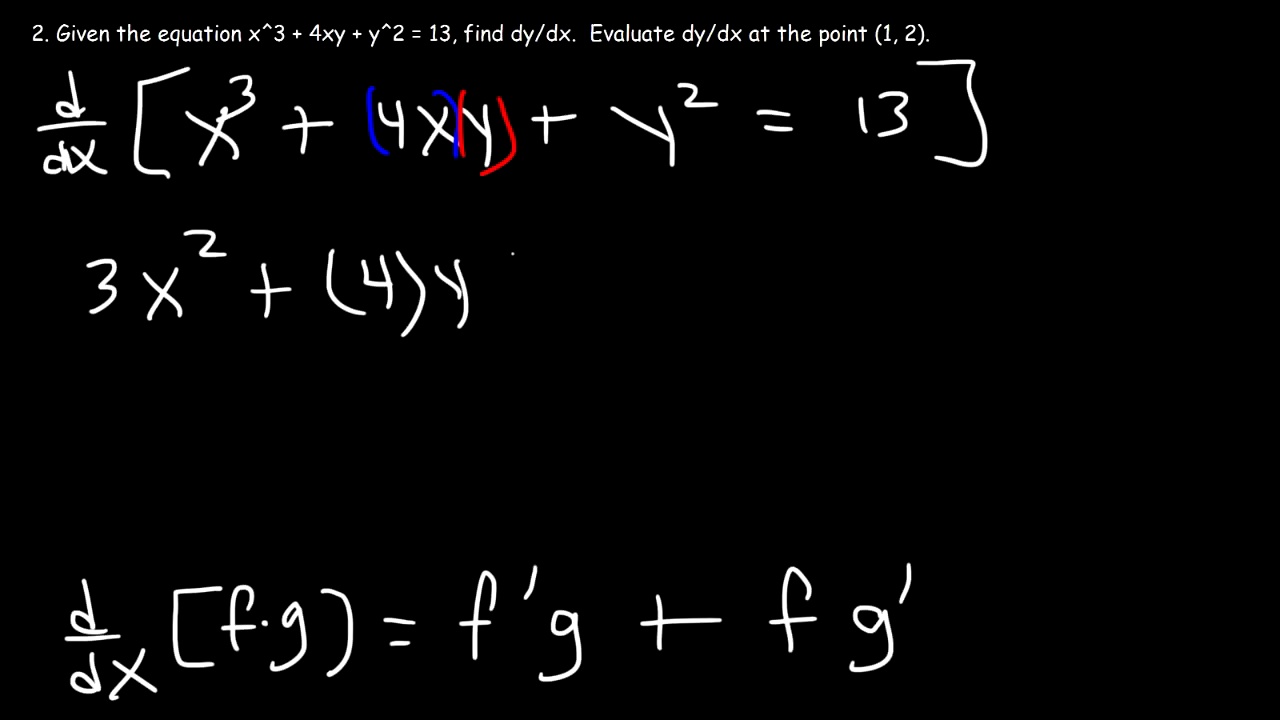 2. Given the equation x^3 + 4xy + y^2 = 13, find dy/dx. Evaluate dy/dx at the point (1, 2).
d/dx [x³ + (4x)(y) + y² = 13]
3x² + (4)y
d/dx [f·g) = f'g + fg'